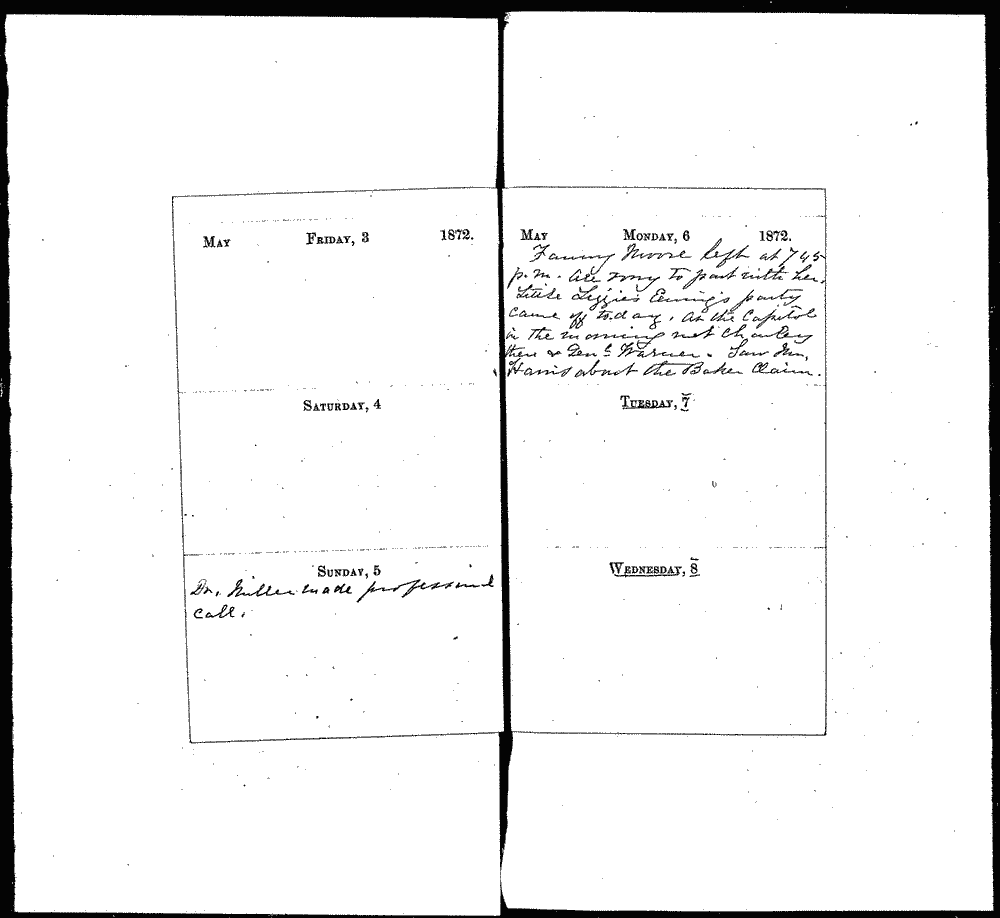 MAY FRIDAY, 3 1872.
SATURDAY, 4
SUNDAY, 5
Dr. Miller made professional
call.
MAY MONDAY, 6 1872.
Fanny Moore left at 7 45
p.m. All sorry to part with her.
Little Lizzie's party
came off today. At the Capitol
in the morning met Charley
there & Genl Warner. Saw Mr.
Harris about the Baker Claim.
TUESDAY, 7
WEDNESDAY, 8